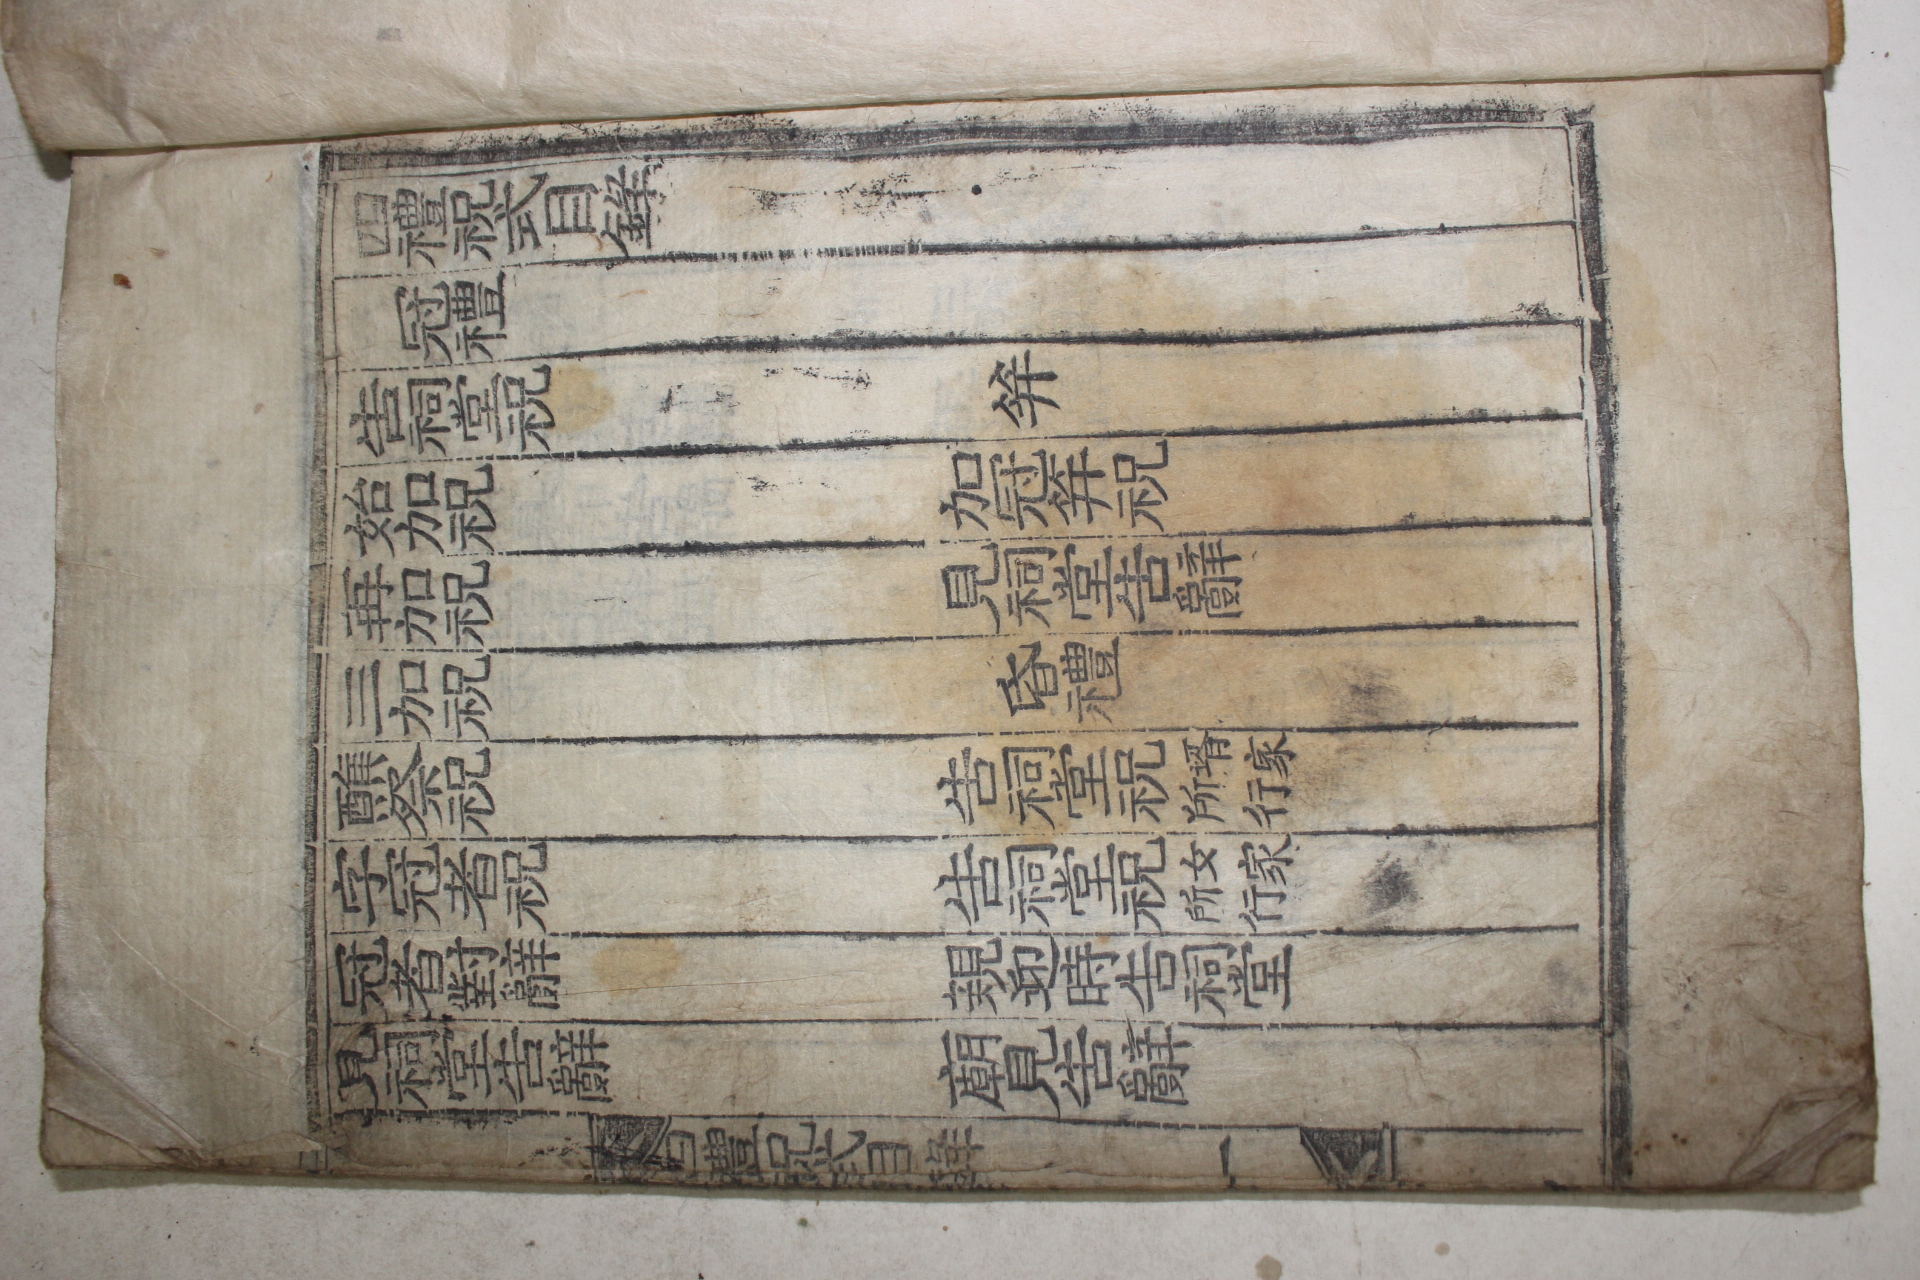 四禮祝式目錄
冠禮
告祠堂祝
始加祝
再加祝
三加祝
醮祭祝
字冠者祝
冠者對辭
見祠堂告辭
笄
加冠笄祝
見祠堂告辭
昏禮
告祠堂祝壻家所行
告祠堂祝女家所行
親迎時告祠堂
廟見告辭
四禮祝式目錄 一